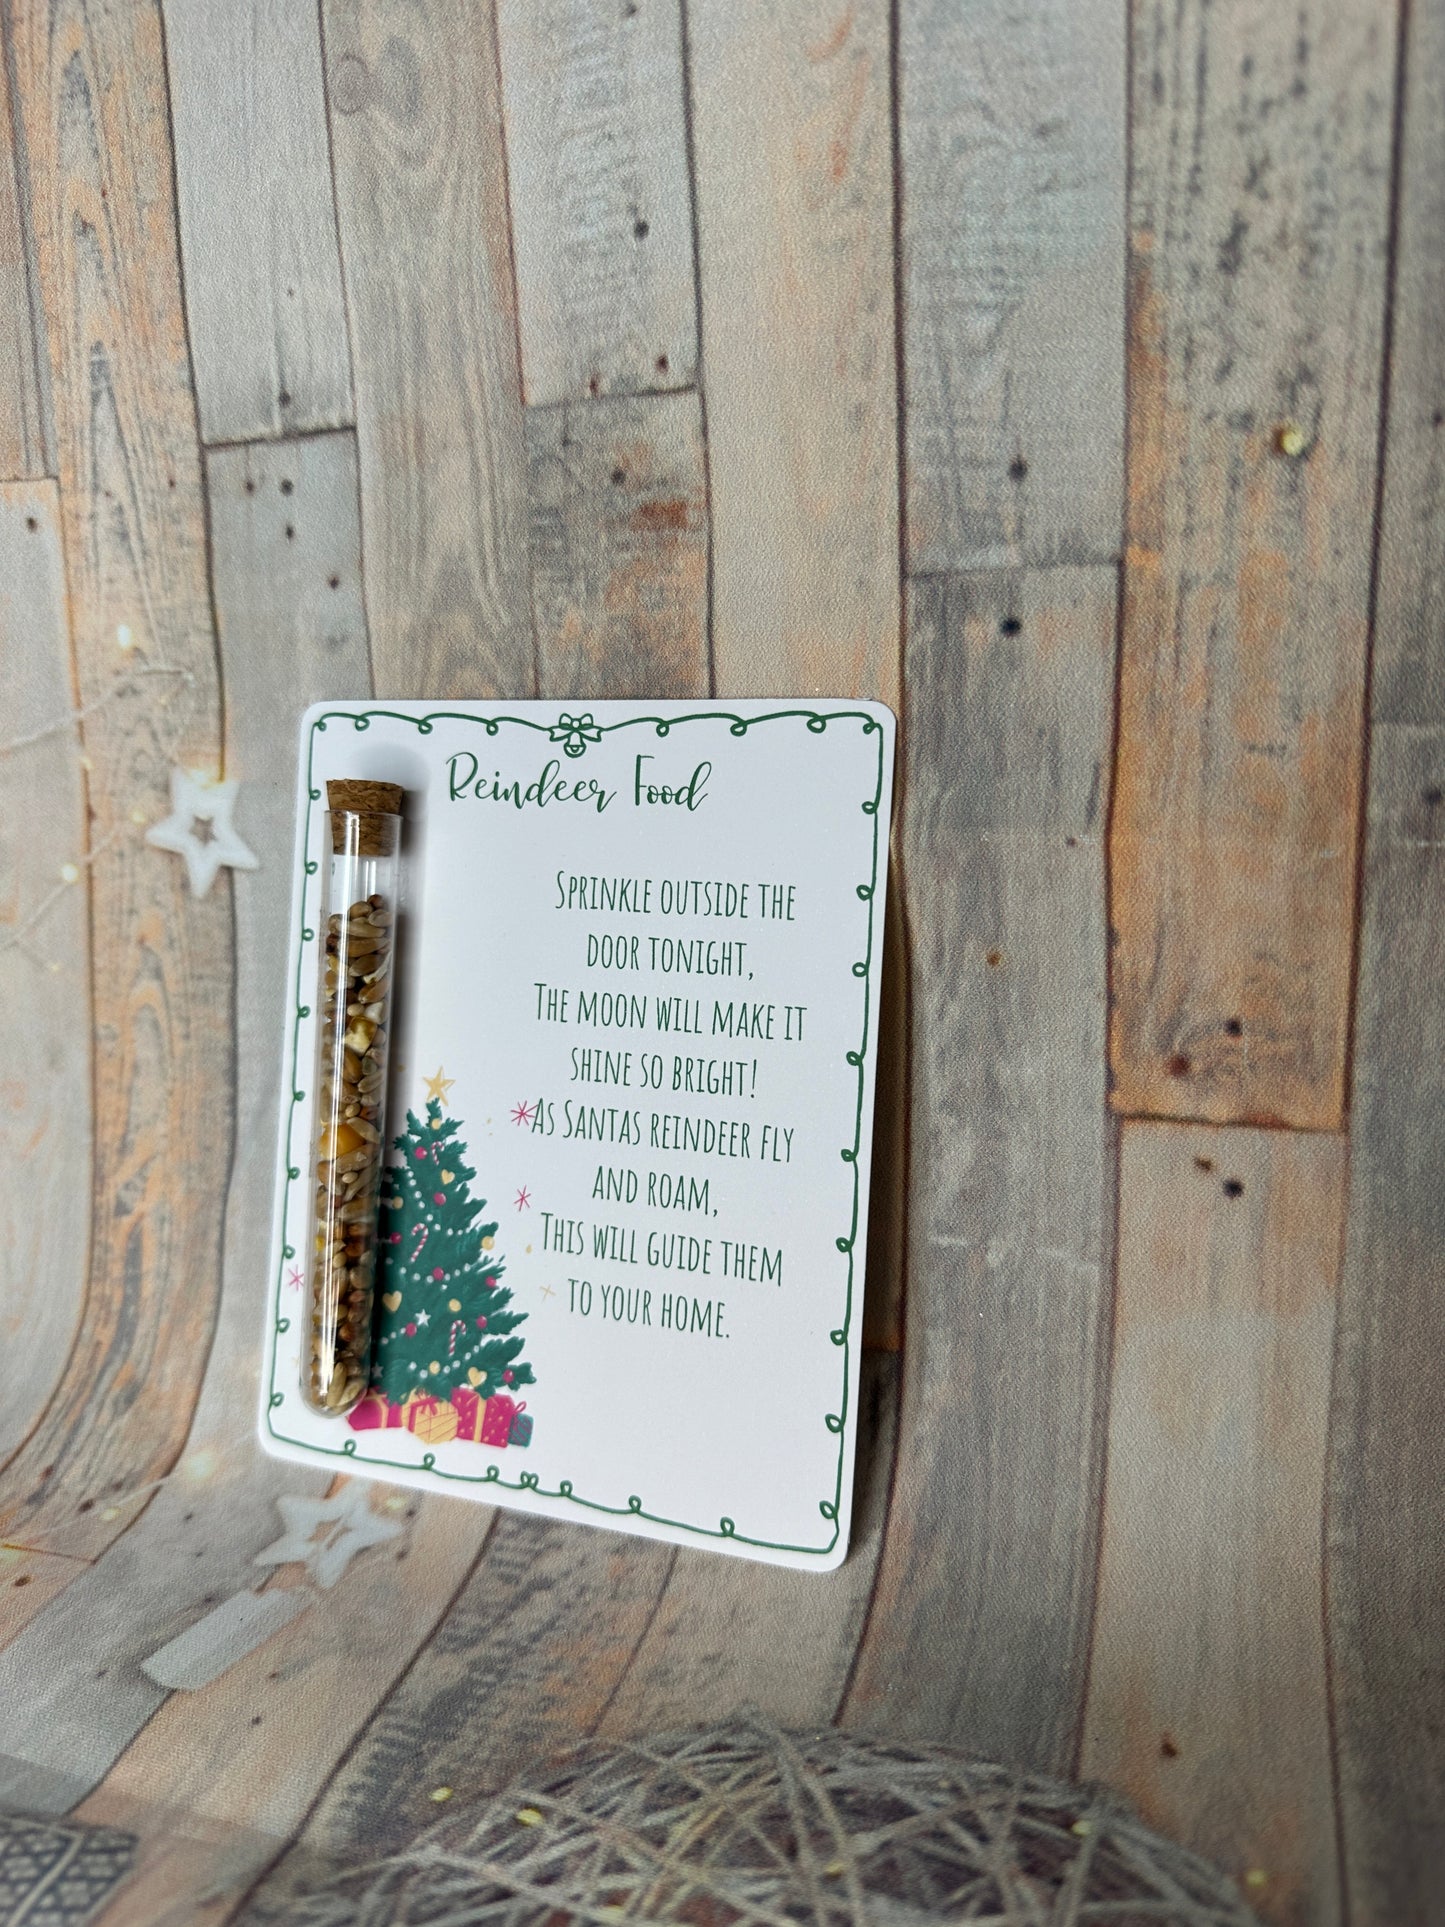 Reindeer Food
Sprinkle outside the
door tonight,
The moon will make it
shine so bright!
As Santas reindeer fly
and roam,
This will guide them
to your home.